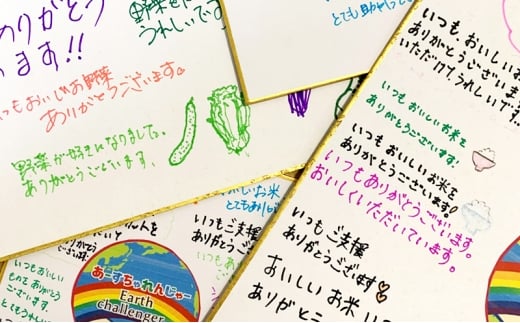 ありがとう
ます!!
いつもおいしいお野菜
ありがとうございます。
野菜が好きになりました。
ありがとうございます。
うれしいです
とても助かって
いつも、おいしい
ありがとうございます
いただけて!うれしいです。
いつもおいしいお米を
ありがとうございます。
いつもおいしいお米を
ありがとうございます!
いつもありがとうございます。
おいしくいただいています。
いつもご支援
ありがとうございます
おいしい お米 い
ありがとう
お米
いつもご支援
ありがとうござ
あーすちゃれんじゃー
Earth
challenger
いつもおいしい
ものをありがとう
ございます。
とてもうれしい